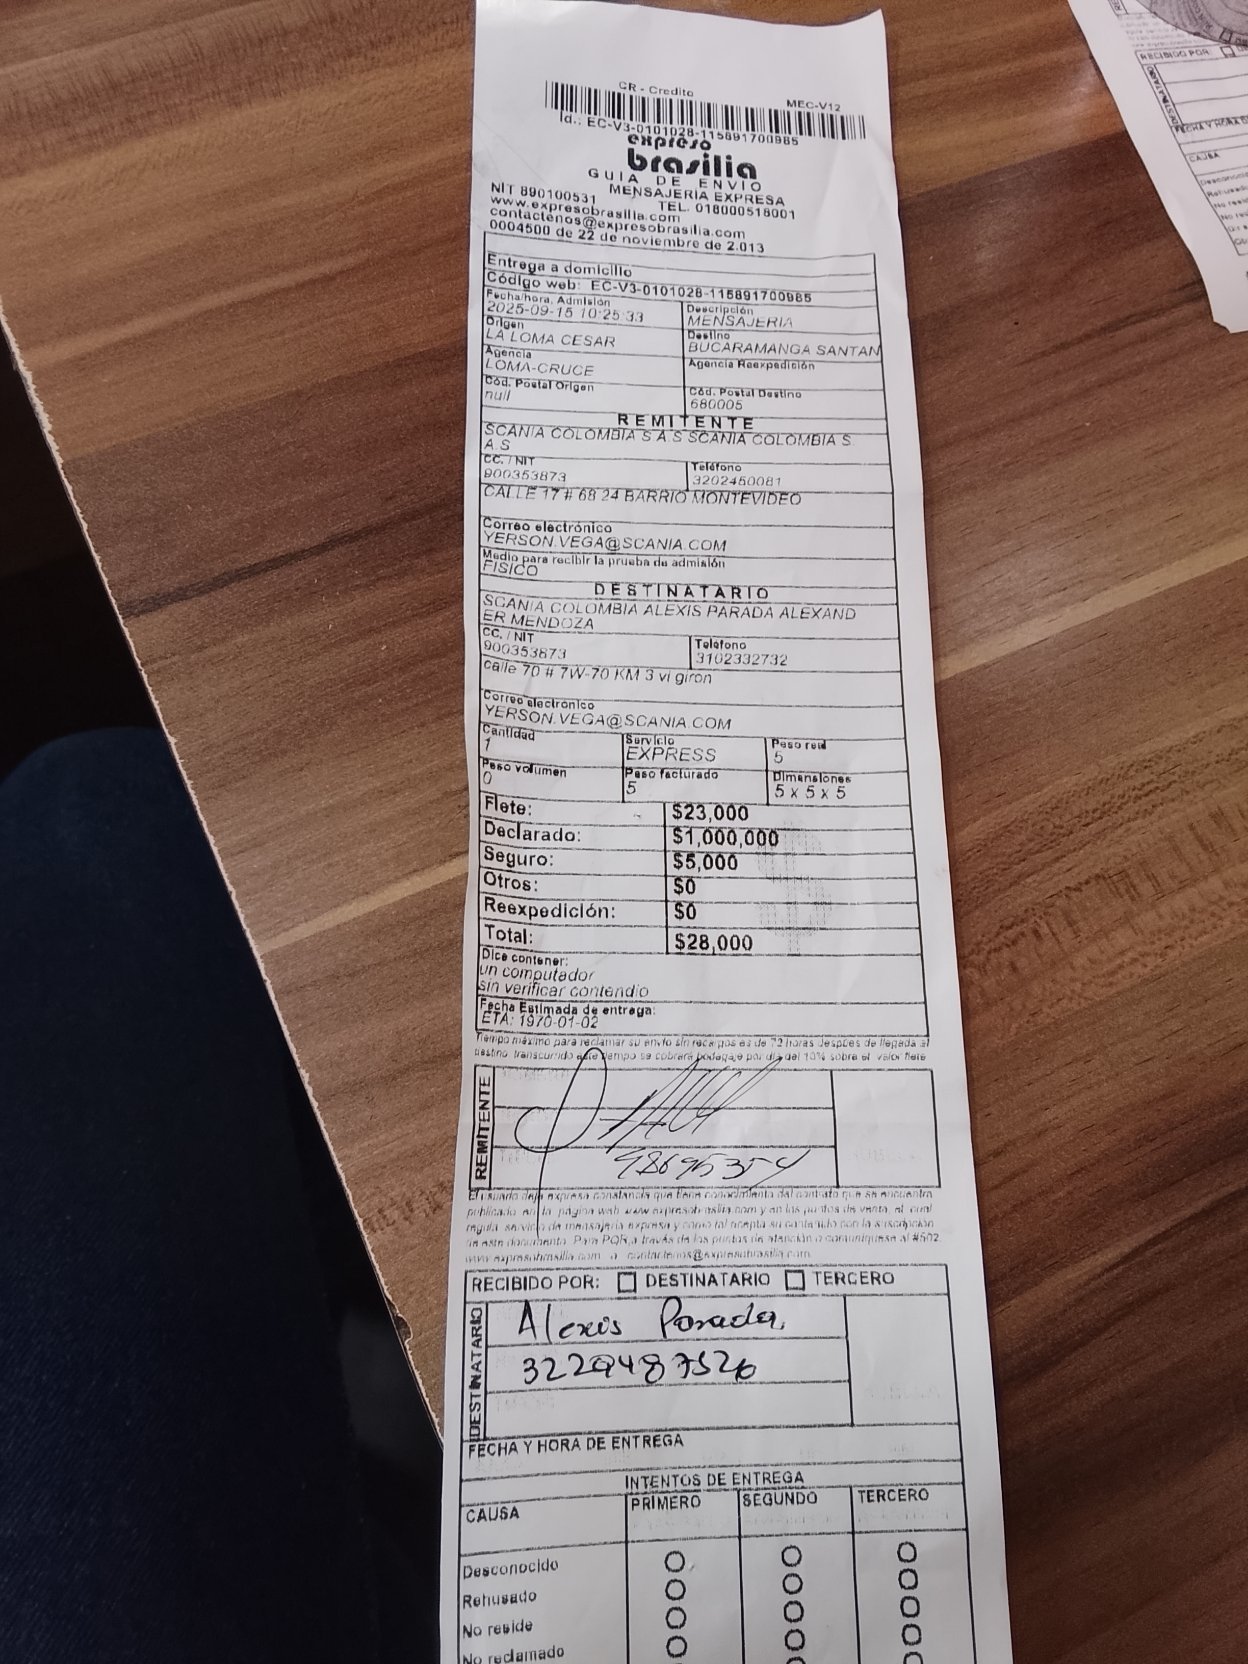 CR - Credito
MEC-V12
Id.: EC-V3-0101028-115891700985
expreso
brasilia
GUIA DE ENVIO
NIT 890100531 MENSAJERIA EXPRESA
www.expresobrasilia.com TEL. 018000518001
contactenos@expresobrasilia.com
0004500 de 22 de noviembre de 2.013
Entrega a domicilio
Código web: EC-V3-0101028-115891700985
Fecha/hora, Admisión Descripción
2025-09-15 10:25:33 MENSAJERIA
Origen Destino
LA LOMA CESAR BUCARAMANGA SANTAN
Agencia Agencia Reexpedición
LOMA-CRUCE
Cód. Postal Origen Cód. Postal Destino
null 680005
REMITENTE
SCANIA COLOMBIA S A S SCANIA COLOMBIA S
A S
CC. / NIT Teléfono
900353873 3202450081
CALLE 17 # 68 24 BARRIO MONTEVIDEO
Correo electrónico
YERSON.VEGA@SCANIA.COM
Medio para recibir la prueba de admisión
FISICO
DESTINATARIO
SCANIA COLOMBIA ALEXIS PARADA ALEXAND
ER MENDOZA
CC. / NIT Teléfono
900353873 3102332732
calle 70 # 7W-70 KM 3 vi giron
Correo electrónico
YERSON.VEGA@SCANIA.COM
Cantidad Servicio Peso real
1 EXPRESS 5
Peso volumen Peso facturado Dimensiones
0 5 5 x 5 x 5
Flete: $23,000
Declarado: $1,000,000
Seguro: $5,000
Otros: $0
Reexpedición: $0
Total: $28,000
Dice contener:
un computador
sin verificar contendio
Fecha Estimada de entrega:
ETA: 1970-01-02
Tiempo máximo para reclamar su envío sin recargos es de 72 horas despúes de llegada al
destino transcurrido este tiempo se cobrará bodegaje por día del 10% sobre el valor flete
REMITENTE
98695354
El usuario deja expresa constancia que tiene conocimiento del contrato que se encuentra
publicado en la página web www.expresobrasilia.com y en los puntos de venta, el cual
regula servicio de mensajería expresa y como tal acepta su contenido con la suscripción
de este documento. Para PQR a través de los puntos de atención o comuníquese al #502
www.expresobrasilia.com o contactenos@expresobrasilia.com
RECIBIDO POR: DESTINATARIO TERCERO
DESTINATARIO
Alexis Parada.
3229487526
FECHA Y HORA DE ENTREGA
INTENTOS DE ENTREGA
CAUSA PRIMERO SEGUNDO TERCERO
Desconocido
Rehusado
No reside
No reclamado
RECIBIDO POR:
DESTINATARIO
CAUSA